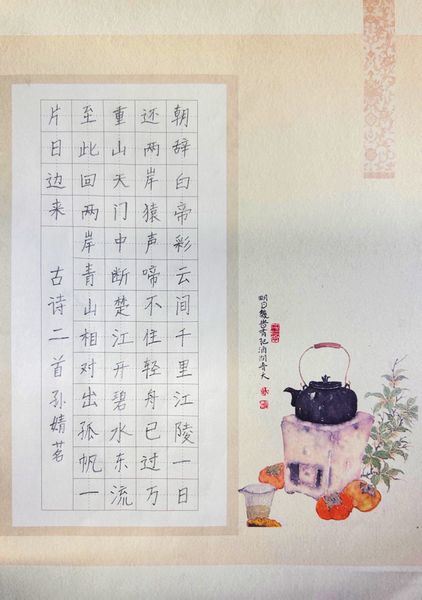 朝辞白帝彩云间千里江陵一日
还两岸猿声啼不住轻舟已过万
重山天门中断楚江开碧水东流
至此回两岸青山相对出孤帆一
片日边来 古诗二首 孙婧茗
明月幾時有把酒問青天